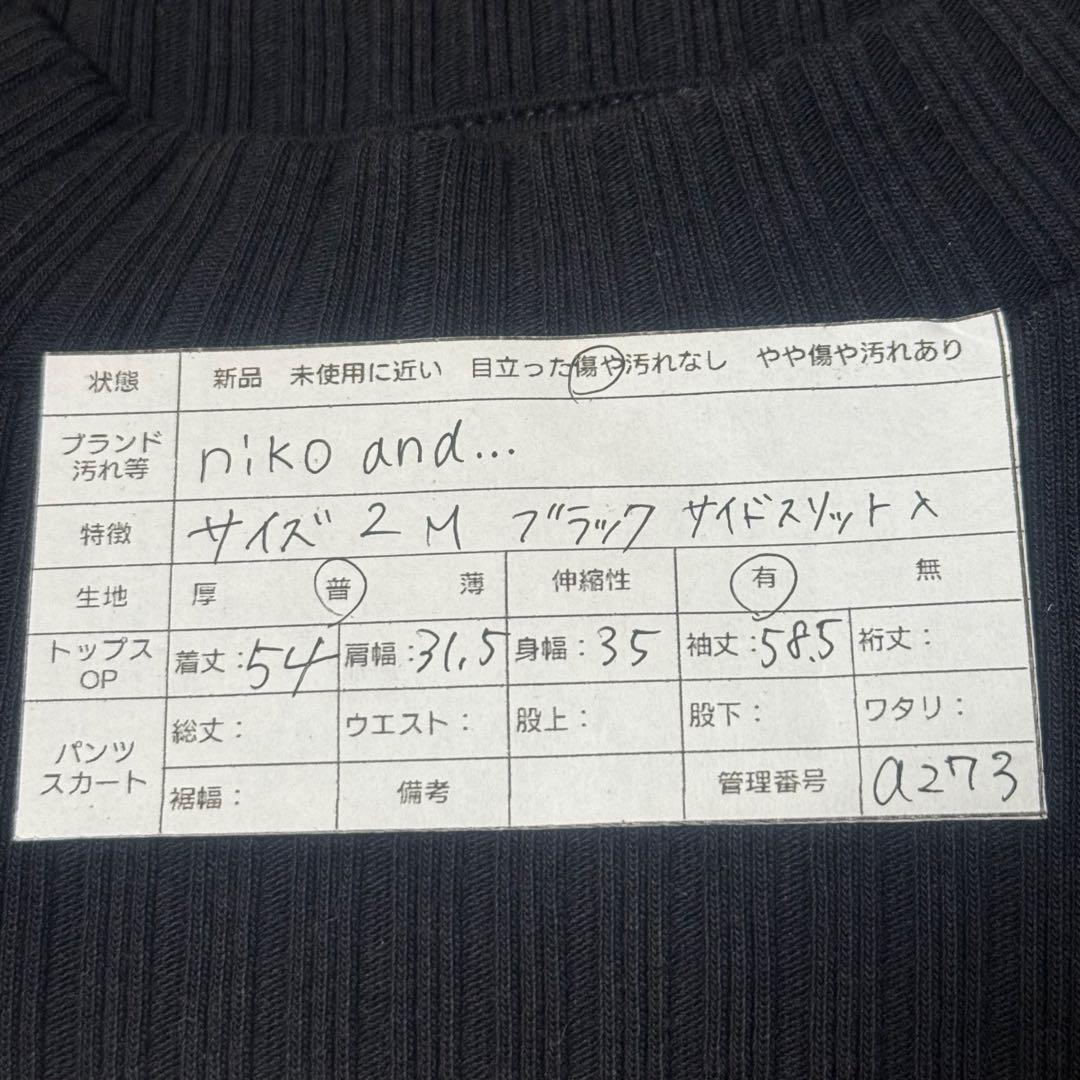 状態 新品 未使用に近い 目立った傷や汚れなし やや傷や汚れあり
ブランド
汚れ等 niko and...
特徴 サイズ 2 M ブラック サイドスリット入
生地 厚 普 薄 伸縮性 有 無
トップス
OP 着丈：54 肩幅：31.5 身幅：35 袖丈：58.5 裄丈：
パンツ
スカート 総丈： ウエスト： 股上： 股下： ワタリ：
裾幅： 備考 管理番号 a273